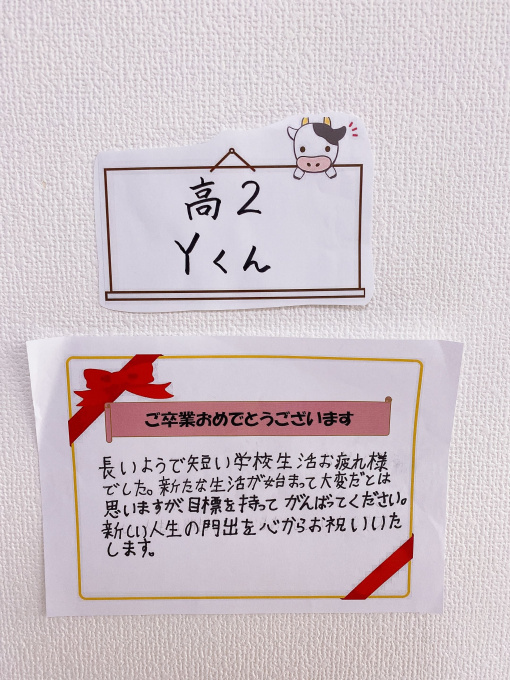 高2
Yくん
ご卒業おめでとうございます
長いようで短い学校生活お疲れ様
でした。新たな生活が始まって大変だとは
思いますが、目標を持ってがんばってください。
新しい人生の門出を心からお祝いいた
します。